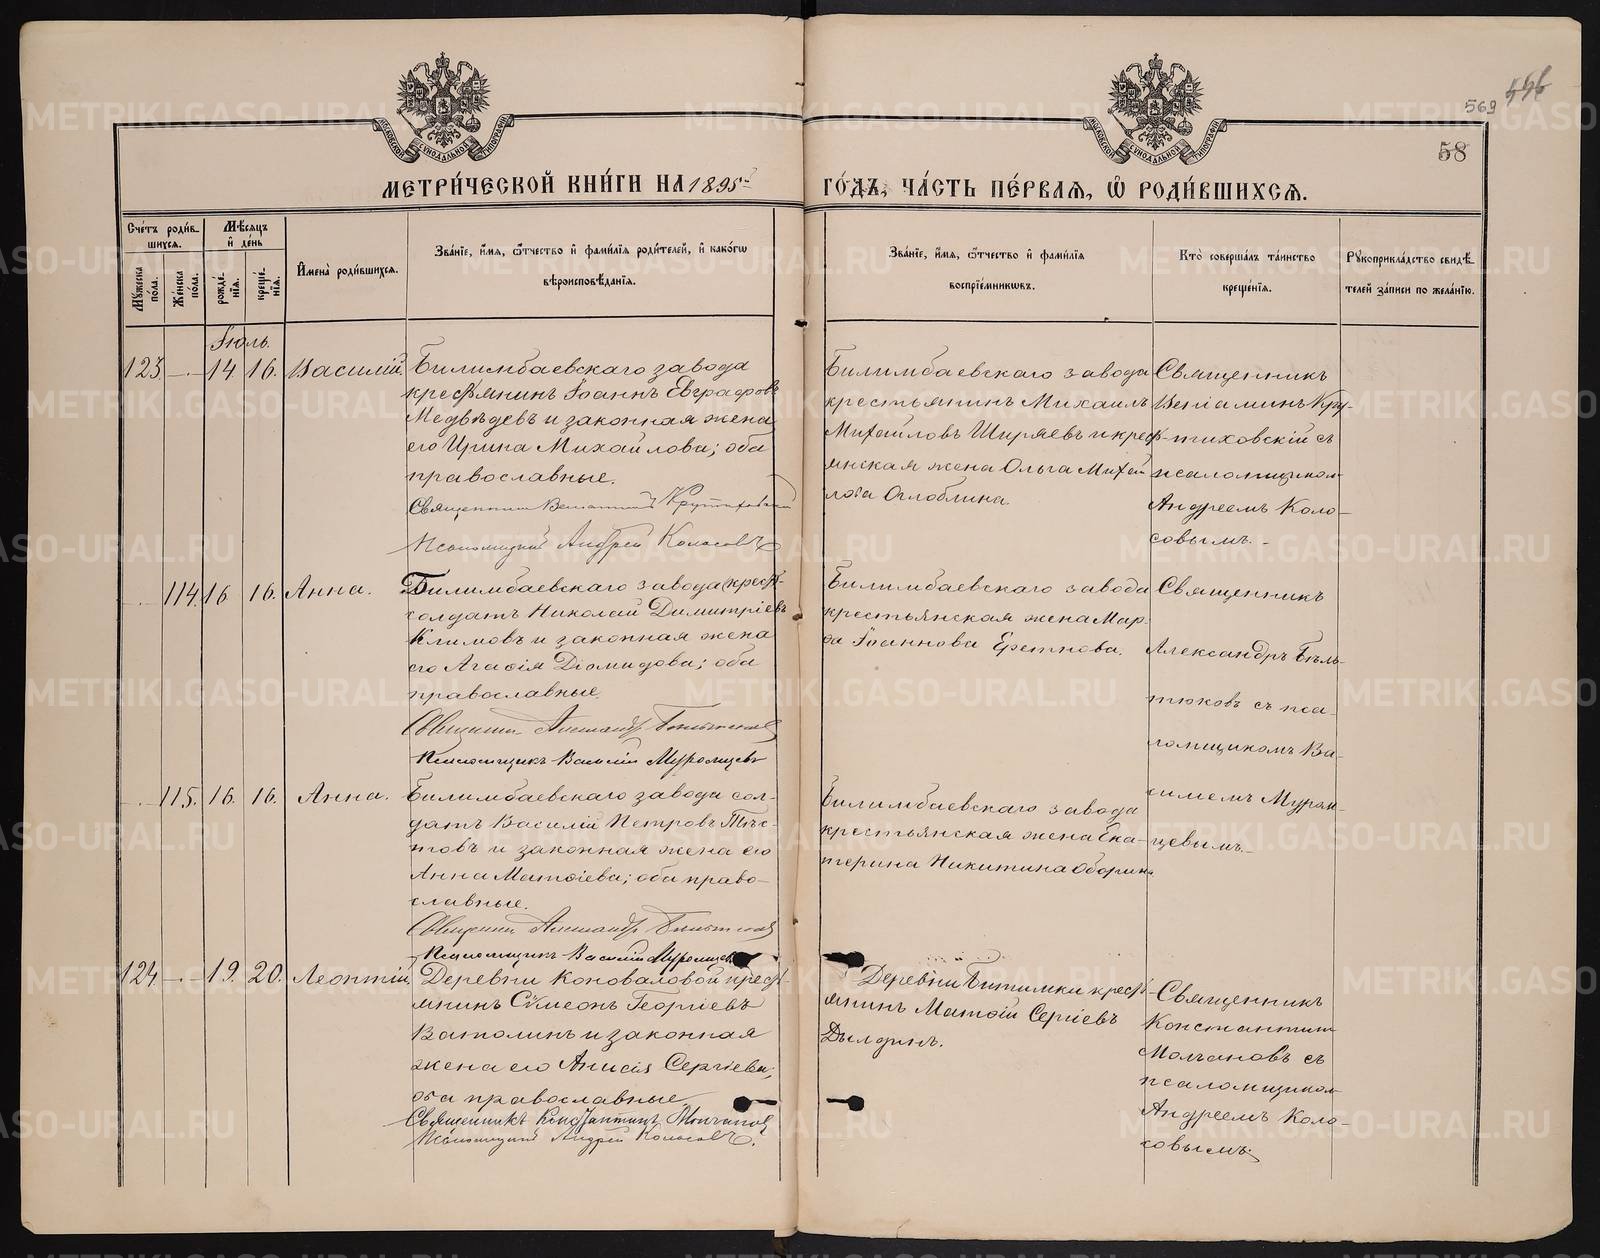 569 446
58
МЕТРИ́ЧЕСКОЙ КНИ́ГИ НА 1895й
ГО́ДЪ, ЧА́СТЬ ПЕ́РВАѦ, Ѡ҆ РОДИ́ВШИХСѦ.
Сче́тъ роди́в-
шихся.
Мѣ́сяцъ
и҆ де́нь
Мꙋ́жеска
по́ла.
Же́нска
по́ла.
рожде́-
нїѧ.
креще́-
нїѧ.
И҆мена̀ роди́вшихся.
Зва́нїе, и҆́мѧ, ѻ҆́тчество и҆ фами́лїѧ роди́телей, и҆ како́гѡ
вѣроисповѣ́данїѧ.
Зва́нїе, и҆́мѧ, ѻ҆́тчество и҆ фами́лїѧ
воспрїе́мникѡвъ.
Кто̀ соверша́лъ та́инство
креще́нїѧ.
Рꙋкоприкла́дство свидѣ́-
телей за́писи по жела́нїю.
Іюль.
123. - 14 16. Василій.
Билимбаевскаго завода
крестьянинъ Іоаннъ Евграфовъ
Медвѣдевъ и законная жена
его Ирина Михайлова; оба
православные.
Священникъ Веніаминъ Крутиховскій
Псаломщикъ Андрей Колосовъ
Билимбаевскаго завода
крестьянинъ Михаилъ
Михайловъ Ширяевъ и крест-
янская жена Ольга Михай
лова Оглоблина.
Священникъ
Веніаминъ Кру-
тиховскій съ
псаломщиком
Андреемъ Коло-
совымъ.
- 114. 16 16. Анна.
Билимбаевскаго завода крест.
солдатъ Николай Димитріевъ
Климовъ и законная жена
его Агафія Діомидова; оба
православные.
Священникъ Александръ Бѣльтюковъ
Псаломщикъ Василій Муромцевъ
Билимбаевскаго завода
крестьянская жена Мар
ѳа Іоаннова Еретнова.
Священникъ
Александръ Бѣль-
тюковъ съ пса-
ломщикомъ Ва-
силіемъ Муром-
цевымъ.
- 115. 16. 16. Анна.
Билимбаевскаго завода сол-
датъ Василій Петровъ Тѣс-
товъ и законная жена его
Анна Матѳіева; оба право-
славные.
Священникъ Александръ Бѣльтюковъ
Псаломщикъ Василій Муромцевъ
Билимбаевскаго завода
крестьянская жена Ека-
терина Никитина Оборина
124. - 19. 20. Леонтій.
Деревни Коноваловой крест-
янинъ Сѵмеонъ Георгіевъ
Ватолинъ и законная
жена его Анисія Сергіева;
оба православные.
Священникъ Константинъ Молчановъ
Псаломщикъ Андрей Колосовъ.
Деревни Битимки крест-
янинъ Матѳій Сергіевъ
Дылдинъ.
Священникъ
Константинъ
Молчановъ съ
псаломщиком
Андреемъ Коло-
совымъ.